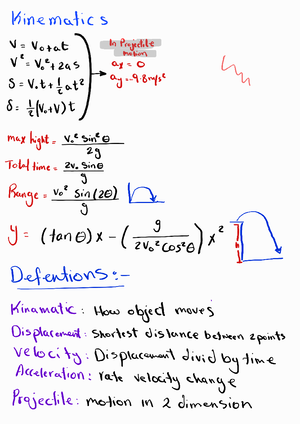 Kinematics
V = V₀ + at
V² = V₀² + 2as
S = V₀t + ½at²
S = ½(V₀+V)t
In Projectile
motion
ax = 0
ay = -9.8 m/s²
max hight = V₀² sin²θ / 2g
Total time = 2V₀ sinθ / g
Range = V₀² sin(2θ) / g
y = (tanθ)x − (g / 2V₀²cos²θ)x²
Defentions:-
Kinamatic: How object moves
Displacement: Shortest distance between 2 points
Velocity: Displacament divid by time
Acceleration: rate velocity change
Projectile: motion in 2 dimension